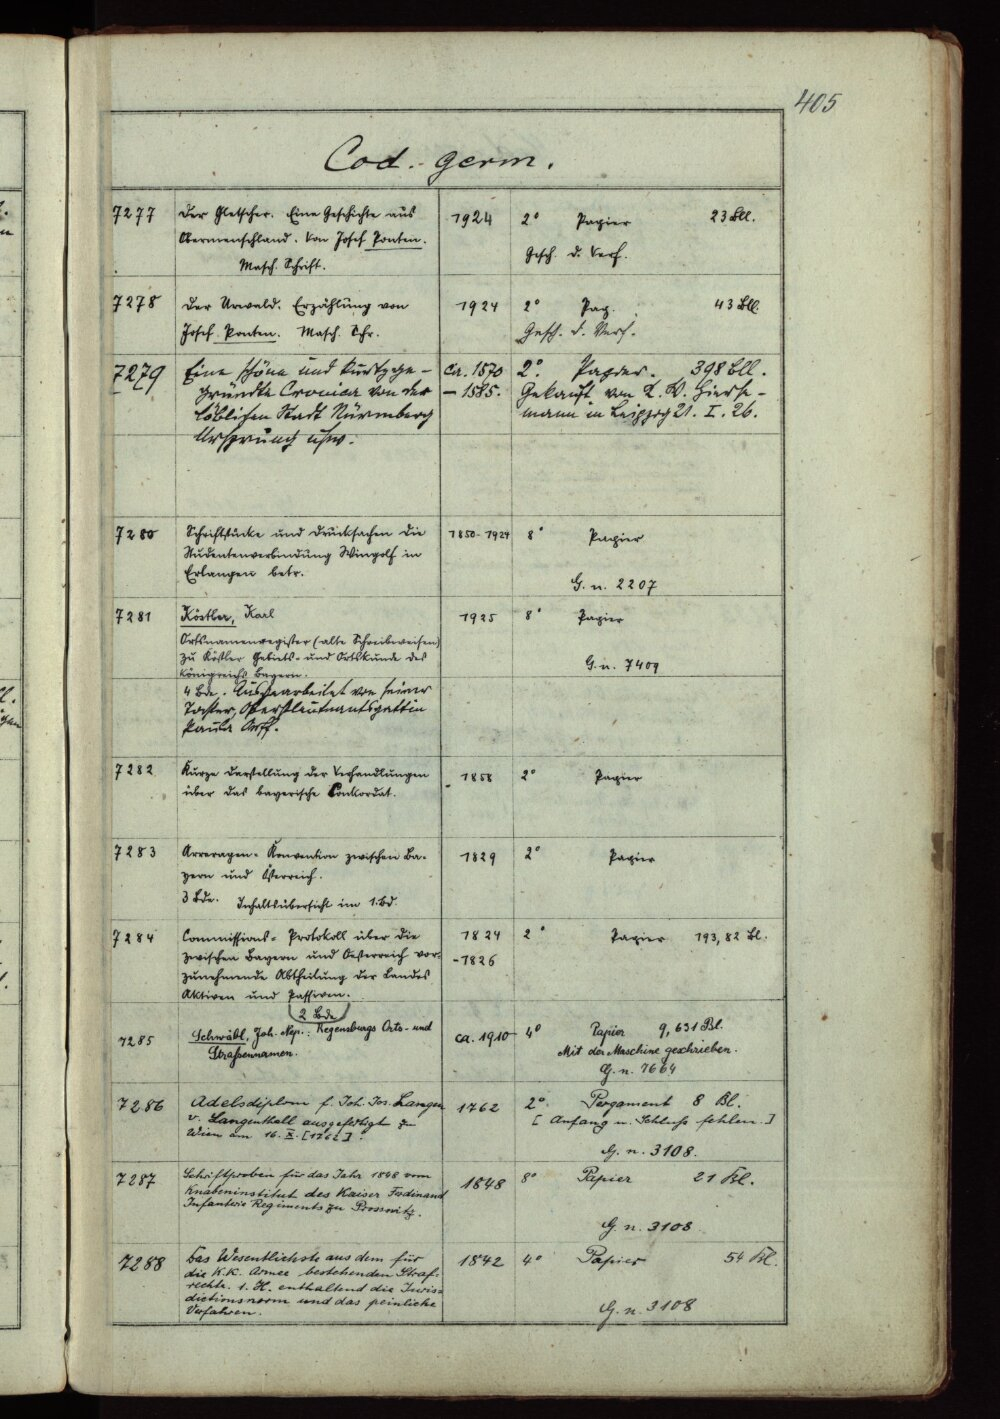 405
Cod. germ.
7277 Der Gletscher. Eine Geschichte aus 1924 2° Papier 23 Bll.
Obermenschland. Von Josef Ponten. Gesch. d. Verf.
Masch. Schrift.
7278 Der Urwald. Erzählung von 1924 2° Pap. 43 Bll.
Josef Ponten. Masch. Schr. Gesch. d. Verf.
7279 Eine schöne und kurtzge- ca. 1570 2°. Papier. 398 Bll.
gründte Cronica von der – 1585. Gekauft von K. W. Hierse-
löblichen Stadt Nürmberg mann in Leipzig 21. I. 26.
Ursprung usw.
7280 Schriftstücke und Drucksachen die 1850-1924 8° Papier
Studentenverbindung Wingolf in
Erlangen betr. G. n. 2207
7281 Köstler, Karl 1925 8° Papier
Ortsnamenregister (alte Schreibweisen)
zu Köstler Gebiets- und Ortskunde des G. n. 7409
Königreichs Bayern.
4 Bde. Ausgearbeitet von seiner
Tochter, Oberstleutnantsgattin
Paula Orff.
7282 Kurze Darstellung der Verhandlungen 1858 2° Papier
über das bayerische Conkordat.
7283 Arreragen-Konvention zwischen Ba- 1829 2° Papier
yern und Österreich.
3 Bde. Inhaltsübersicht im 1. Bd.
7284 Commissions-Protokoll über die 1824 2° Papier 193, 82 Bl.
zwischen Bayern und Oesterreich vor- -1826
zunehmende Abtheilung der Landes
Aktiven und Passiven.
2 Bde
7285 Schwäbl, Joh. Nep.: Regensburgs Orts- und ca. 1910 4° Papier 9, 631 Bl.
Straßennamen. Mit der Maschine geschrieben.
G. n. 7664
7286 Adelsdiplom f. Joh. Jos. Langer 1762 2°. Pergament 8 Bl.
v. Langenthall ausgefertigt zu [Anfang u. Schluß fehlen.]
Wien am 16. X. [1762]. G. n. 3108.
7287 Schriftproben für das Jahr 1848 vom 1848 8° Papier 21 Bl.
Knabeninstitut des Kaiser Ferdinand
Infanterie Regiments zu Prossnitz. G. n. 3108
7288 Das Wesentlichste aus dem für 1842 4° Papier 54 Bl.
die K.K. Armee bestehenden Straf-
rechte. 1. H. enthaltend die Juris-
dictionsnorm und das peinliche G. n. 3108
Verfahren.